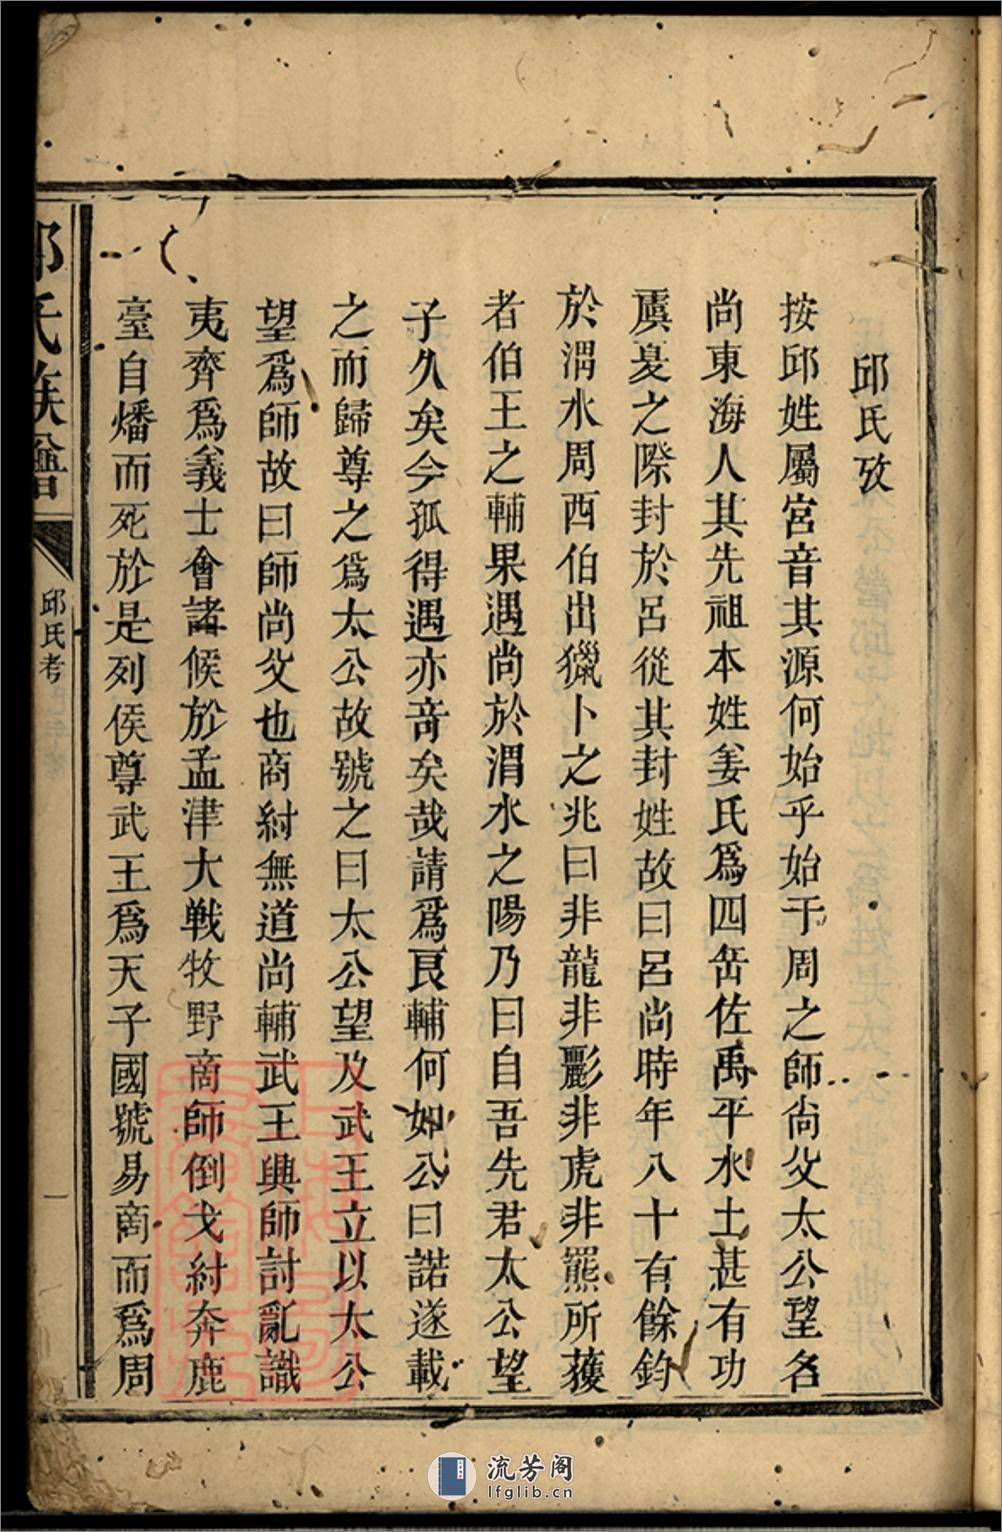 邱氏攷
按邱姓屬宮音其源何始乎始于周之師尚父太公望名
尚東海人其先祖本姓姜氏爲四岳佐禹平水土甚有功
虞夏之際封於呂從其封姓故曰呂尚時年八十有餘釣
於渭水周西伯出獵卜之兆曰非龍非彲非虎非羆所獲
者伯王之輔果遇尚於渭水之陽乃曰自吾先君太公望
子久矣今孤得遇亦竒矣哉請爲良輔何如公曰諾遂載
之而歸尊之爲太公故號之曰太公望及武王立以太公
望爲師故曰師尚父也商紂無道尚輔武王興師討亂識
夷齊爲義士會諸候於孟津大戰牧野商師倒戈紂奔鹿
臺自燔而死於是列侯尊武王爲天子國號易商而爲周
邱氏族譜
邱氏考
一
流芳阁
lfglib.cn